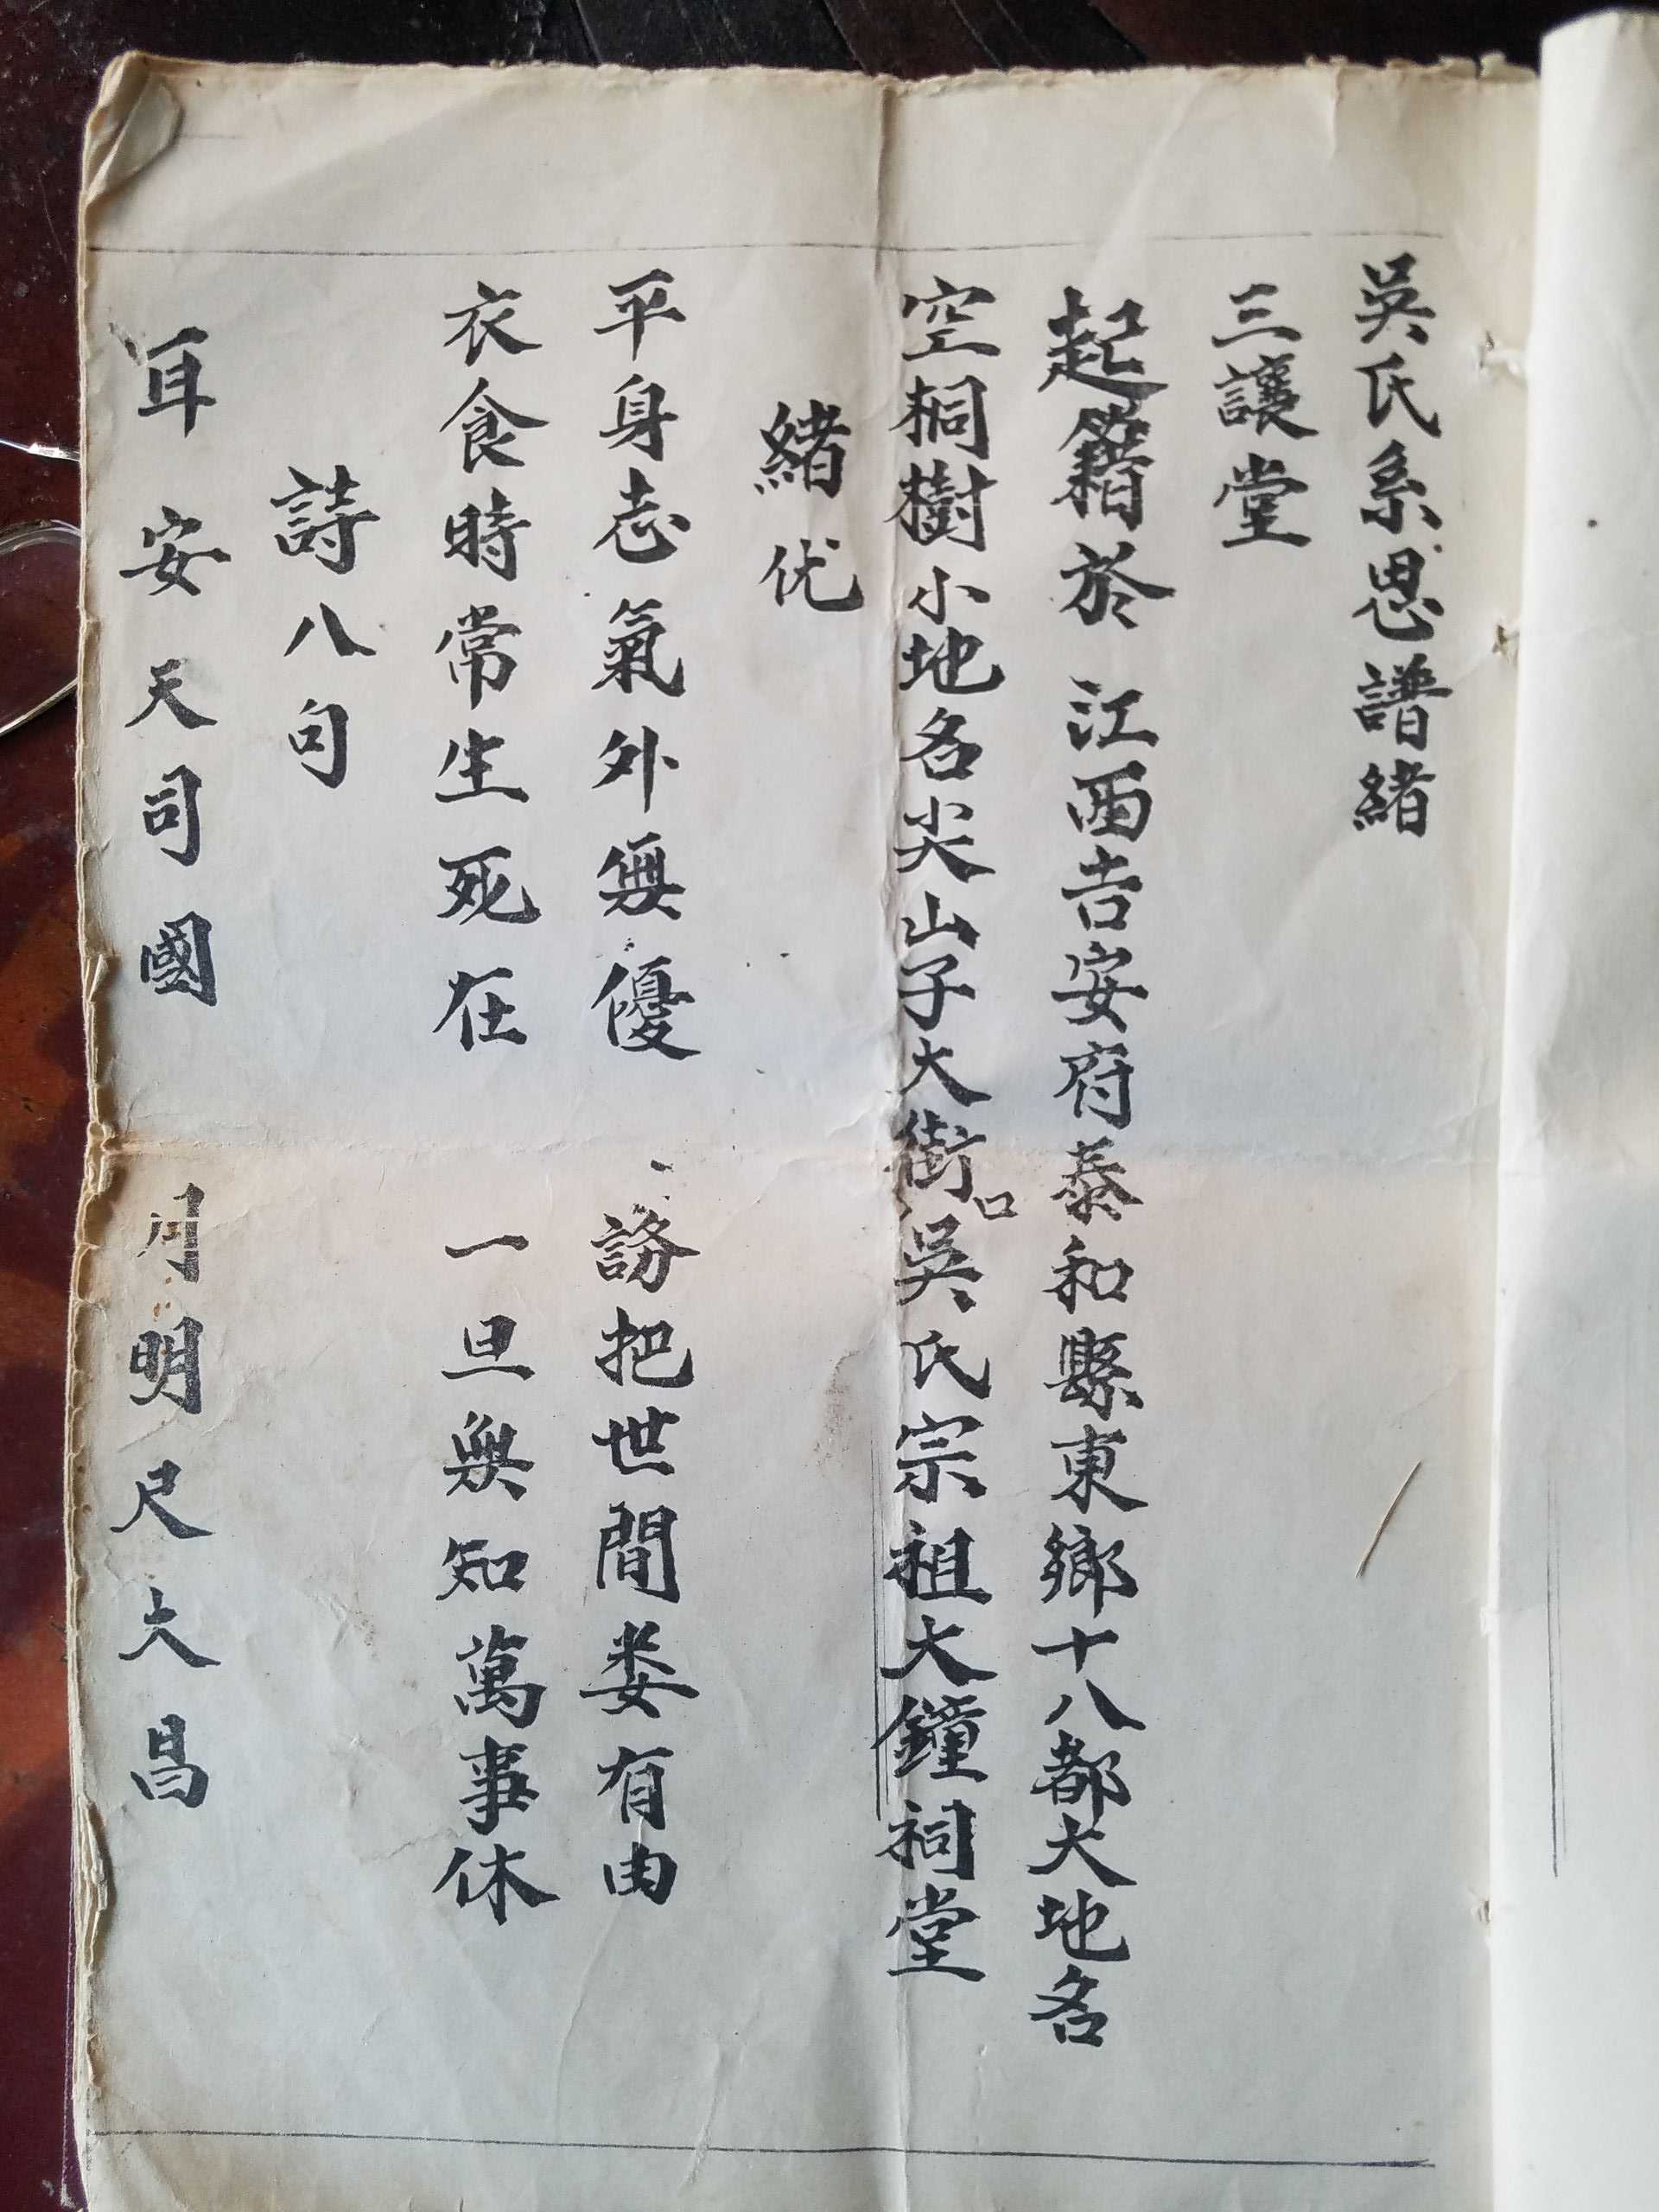 吳氏系恩譜緒
三讓堂
起籍於 江西吉安府泰和縣東鄉十八都大地名
空桐樹小地名尖山子大街口吳氏宗祖大鐘祠堂
緒优
平身志氣外無優 謗把世間娄有由
衣食時常生死在 一旦無知萬事休
詩八句
安天司國 月明尺大昌